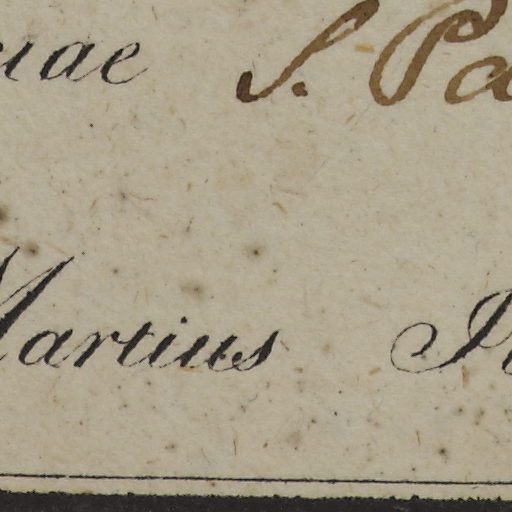 iae S. Pa
Martius